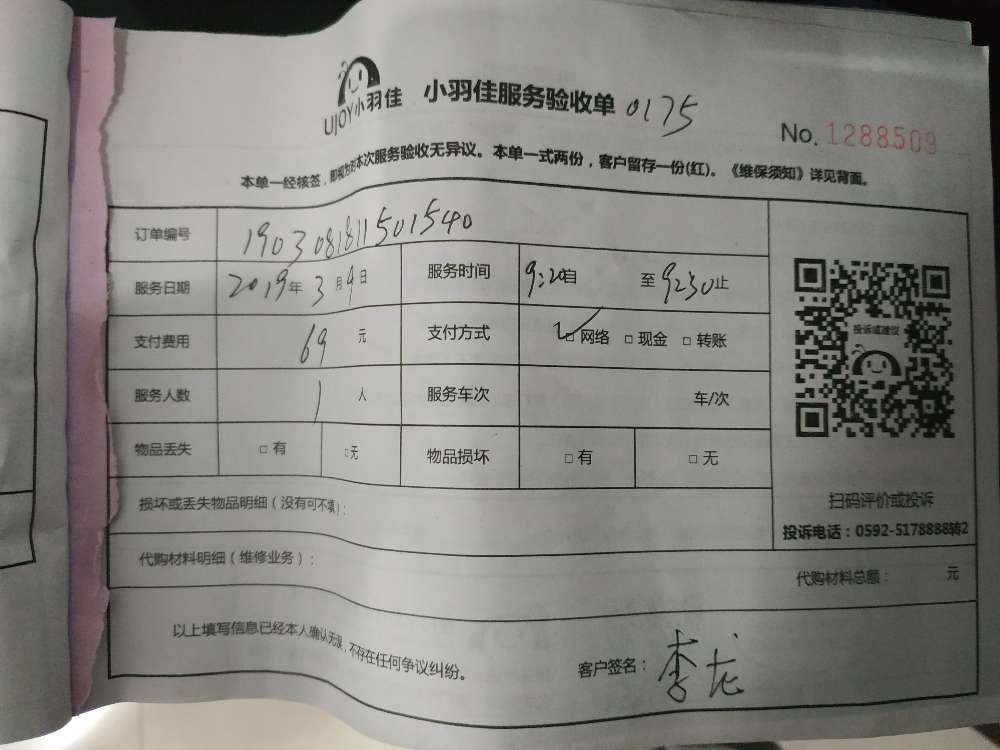 UJOY小羽佳 小羽佳服务验收单 0175
No. 1288509
本单一经核签，即视为对本次服务验收无异议。本单一式两份，客户留存一份(红)。《维保须知》详见背面。
订单编号 1903081811501540
服务日期 2019年3月9日 服务时间 9:20自 至9:50止
支付费用 69元 支付方式 □网络 □现金 □转账
服务人数 1人 服务车次 车/次
物品丢失 □有 □无 物品损坏 □有 □无
投诉或建议
扫码评价或投诉
投诉电话：0592-5178888转2
损坏或丢失物品明细（没有可不填）：
代购材料明细（维修业务）：
代购材料总额： 元
以上填写信息已经本人确认无误，不存在任何争议纠纷。
客户签名：李龙